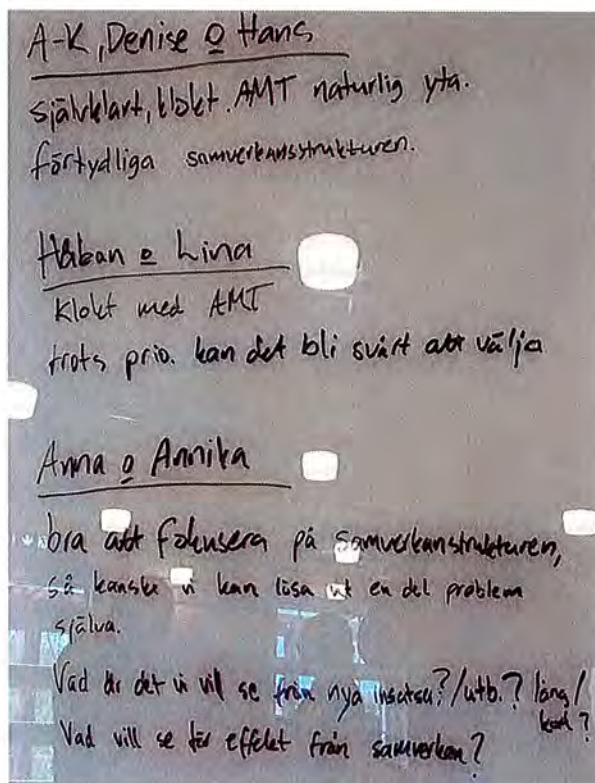 A-K, Denise o Hans
självklart, klokt. AMT naturlig yta.
förtydliga samverkansstrukturen.
Håkan o Lina
Klokt med AMT
trots prio. kan det bli svårt att välja
Anna o Annika
bra att fokusera på samverkanstrukturen,
så kanske vi kan lösa ut en del problem
själva.
Vad är det vi vill se från nya insatser?/utb.? lång/
kort?
Vad vill se för effekt från samverkan?